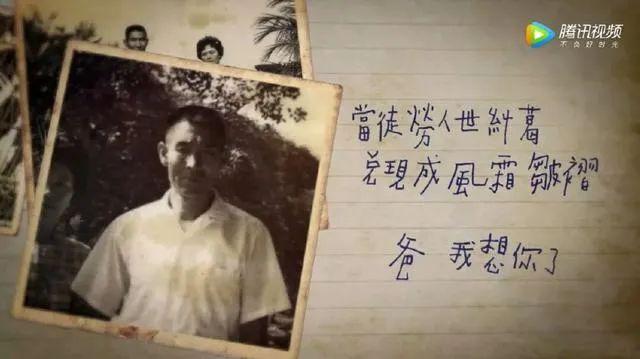 腾讯视频
不负好时光
當徒勞人世糾葛
兌現成風霜皺褶
爸 我想你了